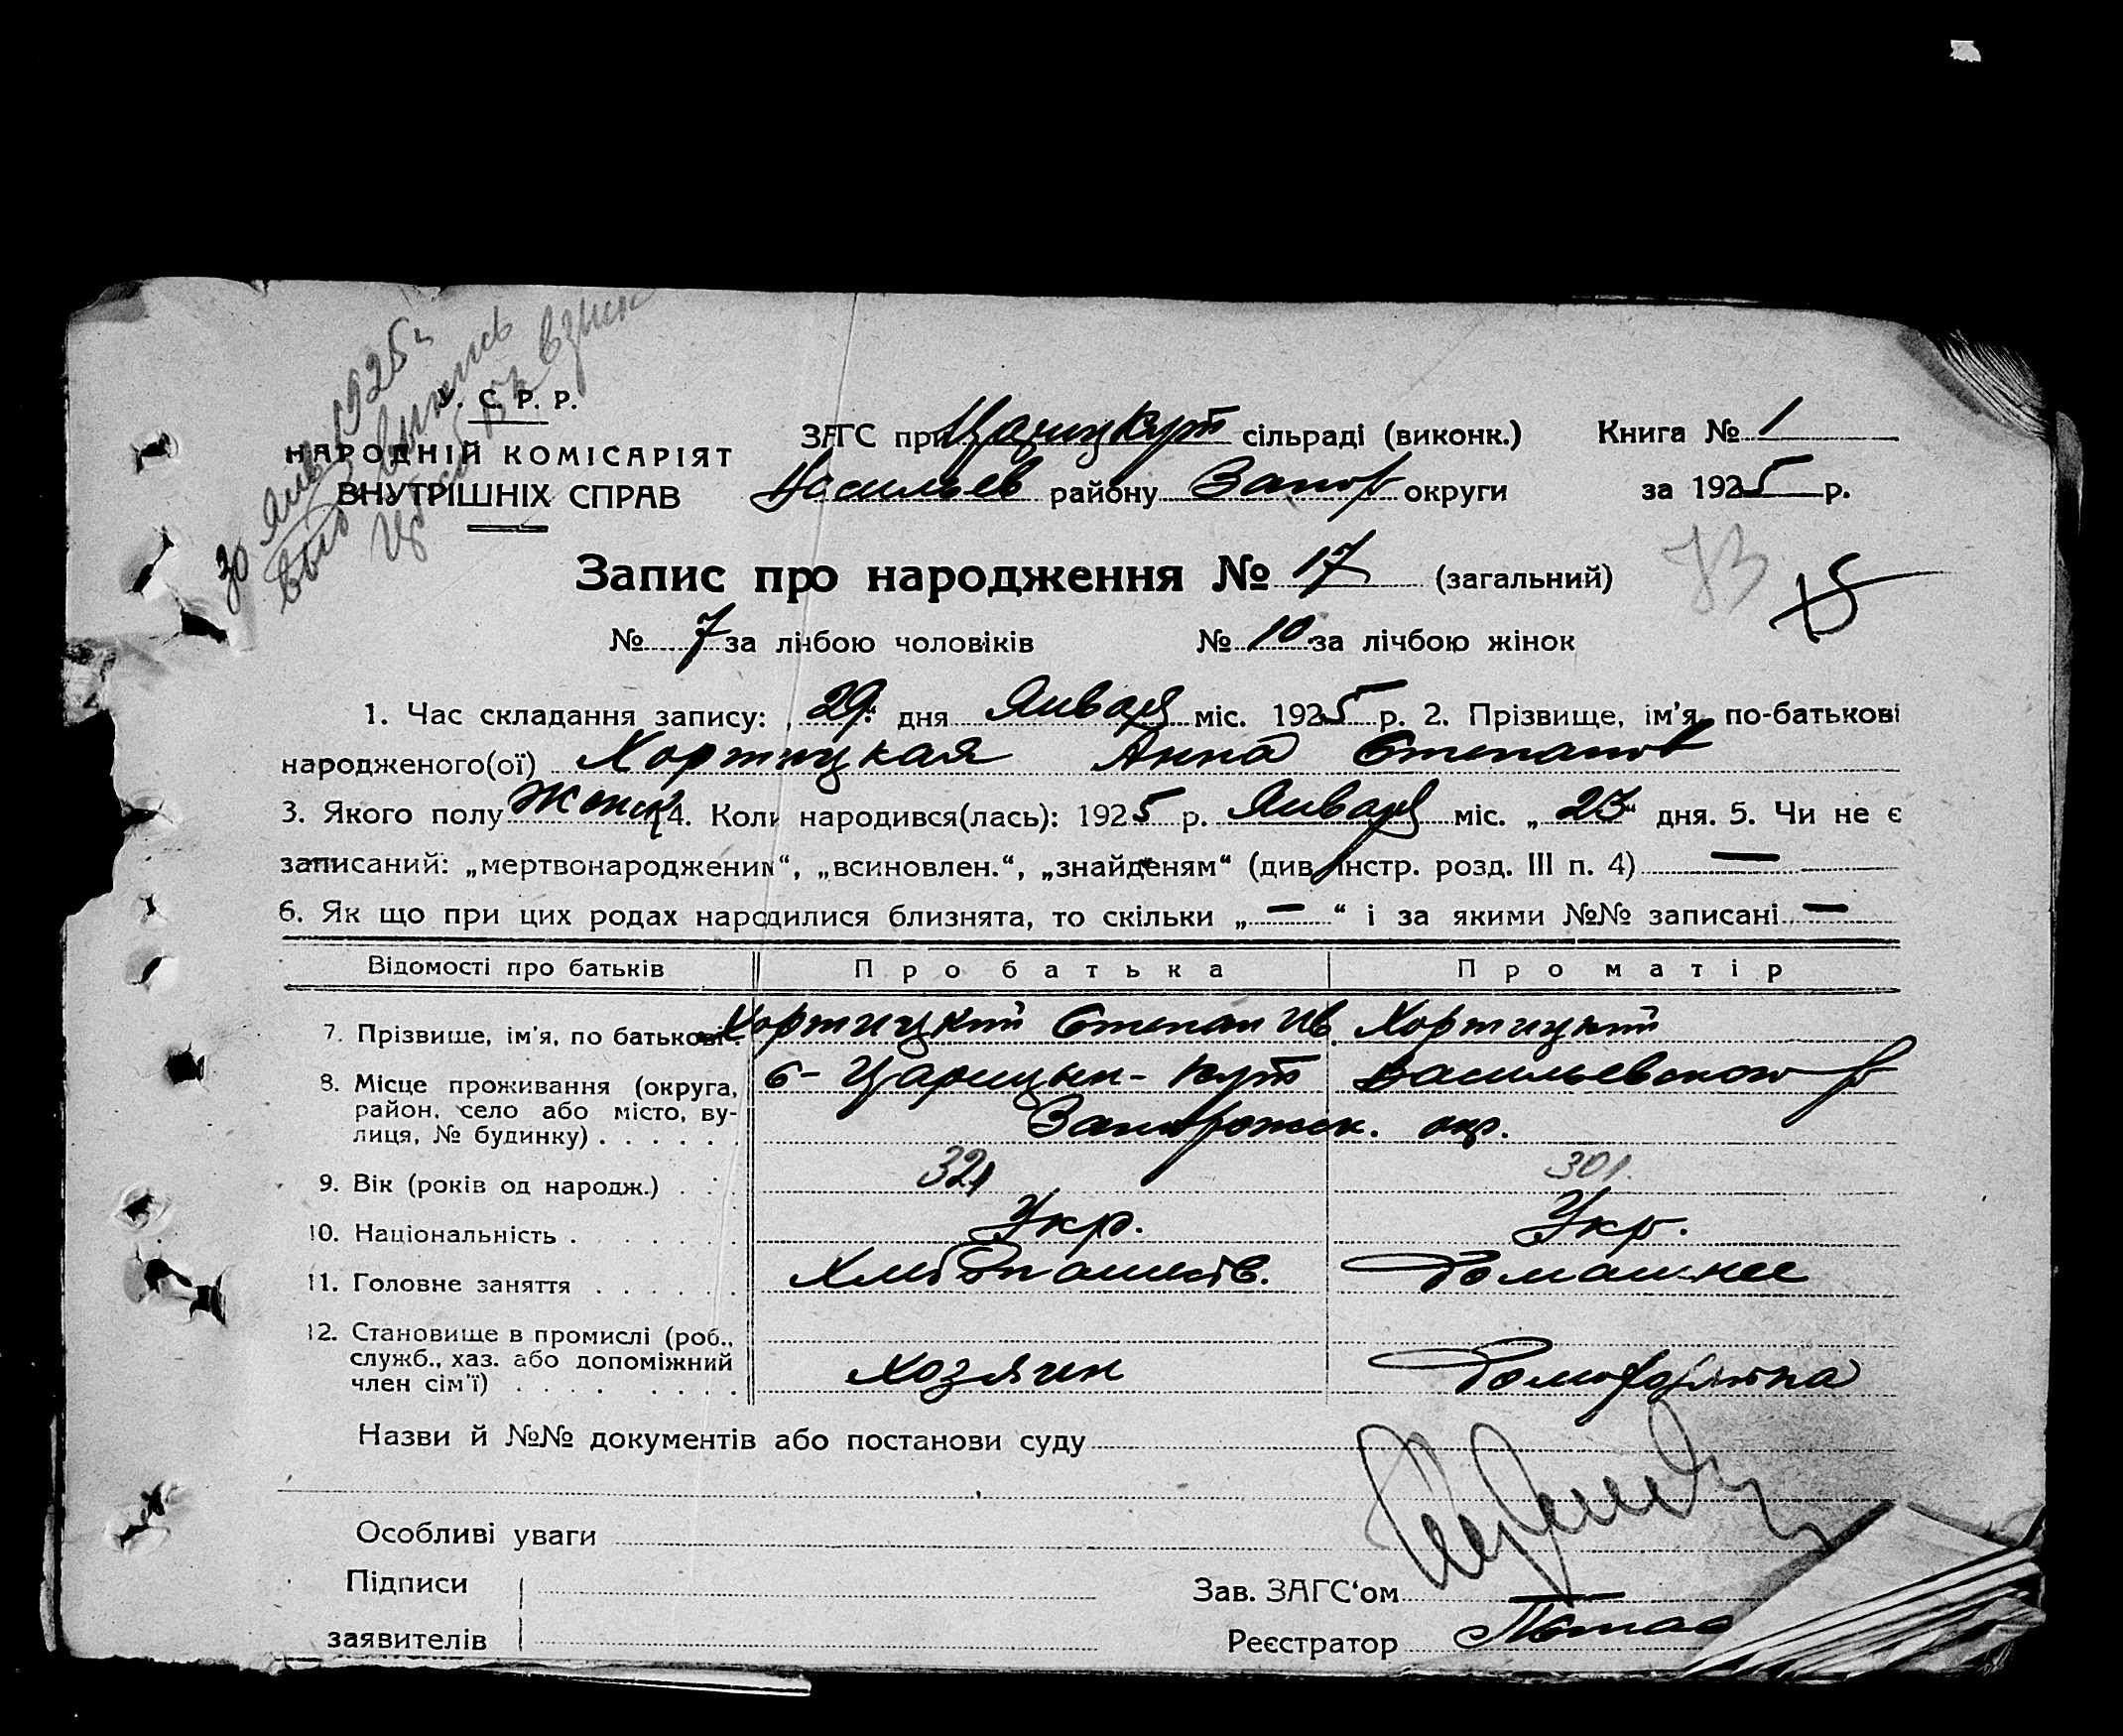 30 Янв 1925 г.
У. С. Р. Р.
НАРОДНІЙ КОМІСАРІЯТ
ВНУТРІШНІХ СПРАВ
ЗАГС при Цариц Кут сільраді (виконк.) Книга № 1
Васильев району Запор округи за 1925 р.
Запис про народження № 17 (загальний)
73 15
№ 7 за лічбою чоловіків № 10 за лічбою жінок
1. Час складання запису: „29“ дня Января міс. 1925 р. 2. Прізвище, ім'я, по-батькові
народженого(ої) Хортицкая Анна Степанов
3. Якого полу Женск 4. Коли народився(лась): 1925 р. Января міс. „23“ дня. 5. Чи не є
записаний: „мертвонародженим“, „всиновлен.“, „знайденям“ (див. інстр. розд. III п. 4) —
6. Як що при цих родах народилися близнята, то скільки „—“ і за якими №№ записані —
Відомості про батьків Про батька Про матір
7. Прізвище, ім'я, по батькові. Хортицкий Степан Ив. Хортицкий
8. Місце проживання (округа, с- Царицын- Кут Васильевского р
район, село або місто, ву-
лиця, № будинку) . . . . . . Запорожск. окр.
9. Вік (років од народж.) . . . 32 30
10. Національність . . . . . . Укр. Укр.
11. Головне заняття . . . . . . Хлебопашеств. Домашнее
12. Становище в промислі (роб.,
служб., хаз. або допоміжний
член сім'ї) . . . . . . . . Хозяин
Назви й №№ документів або постанови суду
Особливі уваги
Підписи
Зав. ЗАГС'ом
заявителів
Реєстратор